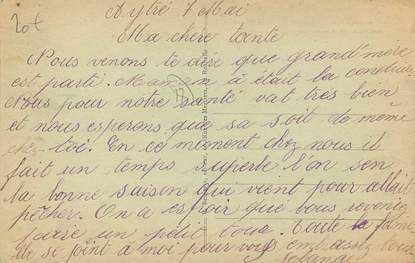 20f
Aytré 7 Mai
Ma chère tante
Nous venons te dire que grand mère
est parti. Maman à était la conduire
Nous pour notre santé vat très bien
et nous esperons que sa soit de même
chez toi. En ce moment chez nous il
fait un temps superbe l'on sen
la bonne saison que vient pour allait
pêcher. On a espoir que vous revenez
faire un petit tour. Toute la famil
le se joint a moi pour vous embrassez tous
Solange